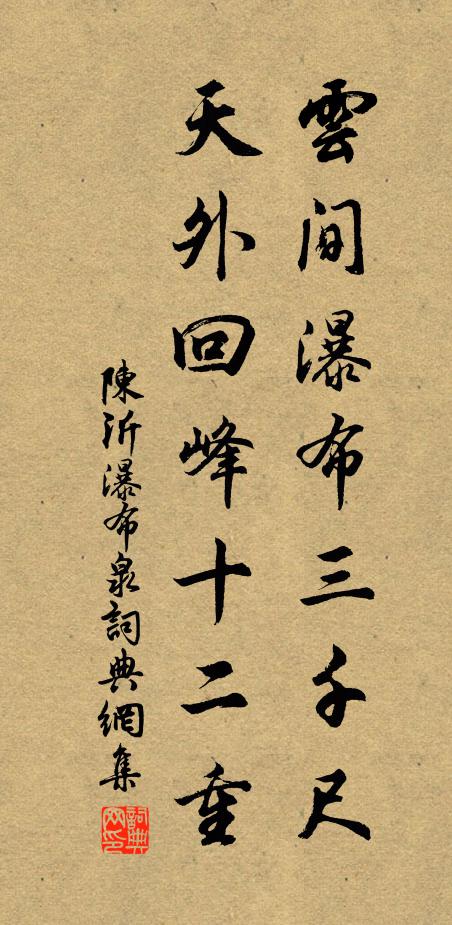 雲間瀑布三千尺
天外回峰十二重
陳沂瀑布泉詞典網集
詞典网印